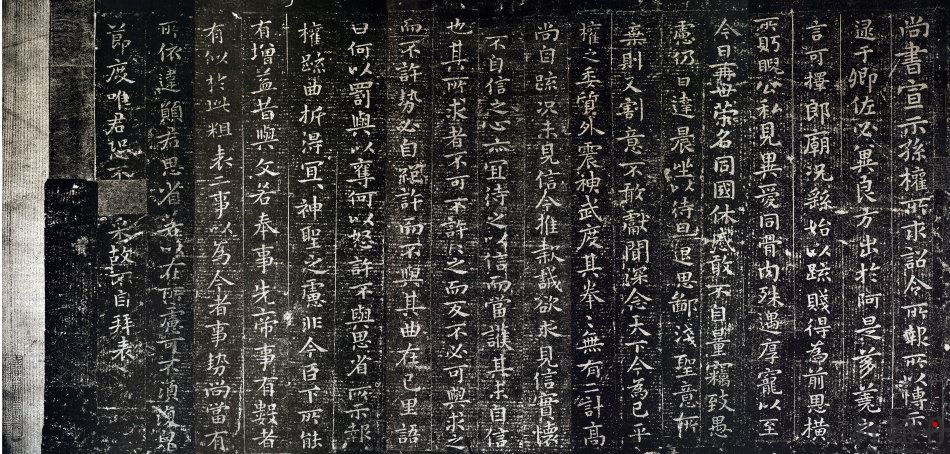 尚書宣示孫權所求詔令所報所以博示
逮于卿佐必冀良方出於阿是芻蕘之
言可擇郎廟況繇始以疏賤得為前恩橫
所䀡睨公私見異愛同骨肉殊遇厚寵以至
今日再世榮名同國休慼敢不自量竊致愚
慮仍日達晨坐以待旦退思鄙淺聖意所
棄則又割意不敢獻聞深念天下今為已平
權之委質外震神武度其拳〻無有二計高
尚自疏況未見信今推款誠欲求見信實懷
不自信之心亦宜待之以信而當護其未自信
也其所求者不可不許許之而反不必可與求之
而不許勢必自絕許而不與其曲在己里語
曰何以罰與以奪何以怒許不與思省所示報
權疏曲折得宜宜神聖之慮非今臣下所能
有增益昔與文若奉事先帝事有數者
有似於此粗表二事以為今者事勢尚當有
所依違願君思省若以在所慮可不須復皃
節度唯君恐不
采故不自拜表